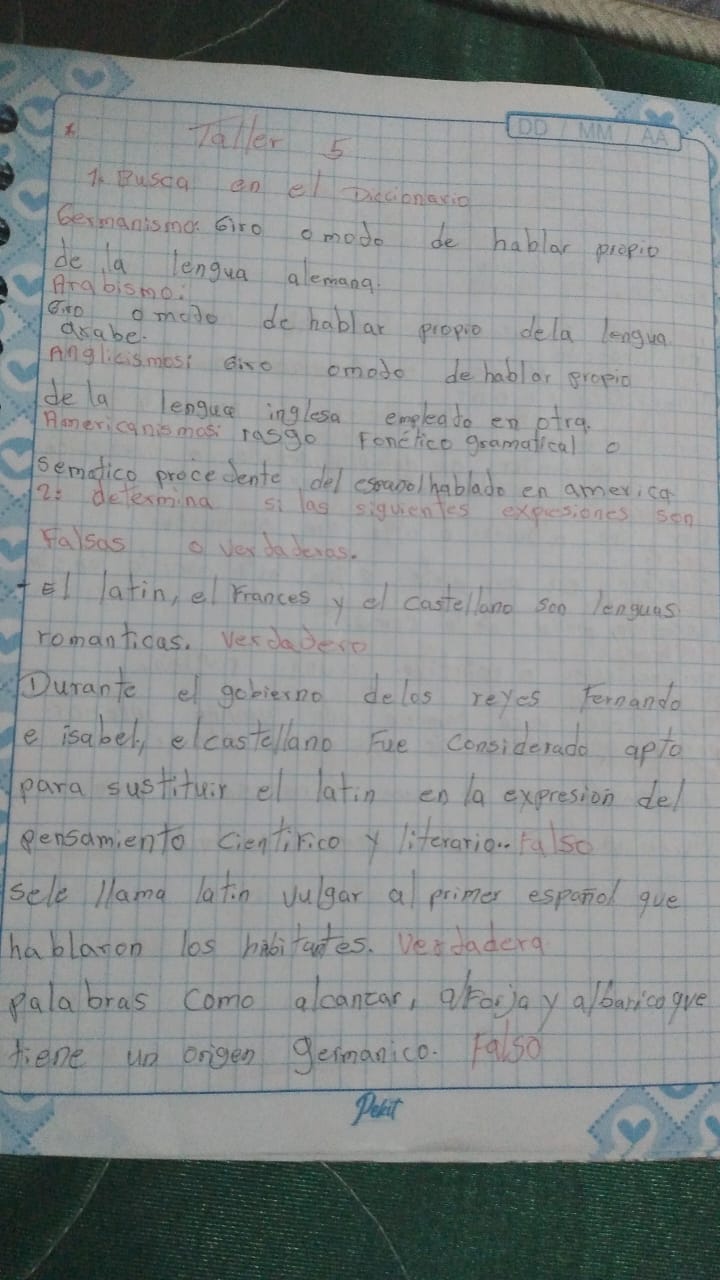 DD / MM / AA
* Taller 5
1. Busca en el Diccionario
Germanismo: Giro o modo de hablar propio
de la lengua alemana.
Arabismo:
Giro o modo de hablar propio dela lengua
arabe.
Anglicismos: Giro omodo de hablar propio
de la lengua inglesa empleado en otra.
Americanismos: rasgo fonético gramatical o
sematico procedente del español hablado en america
2: determina si las siguientes expresiones son
Falsas o verdaderas.
+ El latin, el Frances y el castellano son lenguas
romanticas. Verdadero
Durante el gobierno delos reyes Fernando
e isabel, elcastellano Fue considerado apto
para sustituir el latin en la expresion del
pensamiento cientifico y literario.. Falso
sele llama latin vulgar al primer español que
hablaron los habitantes. Verdadera
palabras como alcanzar, alforja y albaricoque
tiene un origen germanico. Falso
Pekit